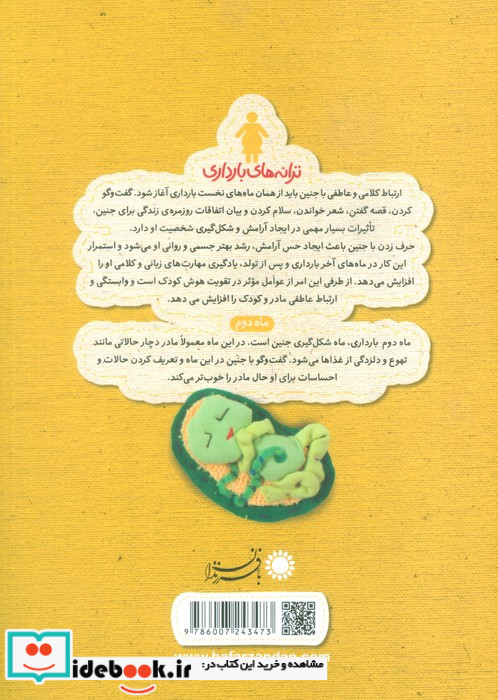 ترانه‌های بارداری
ارتباط کلامی و عاطفی با جنین باید از همان ماه‌های نخست بارداری آغاز شود. گفت‌وگو
کردن، قصه گفتن، شعر خواندن، سلام کردن و بیان اتفاقات روزمره‌ی زندگی برای جنین،
تأثیرات بسیار مهمی در ایجاد آرامش و شکل‌گیری شخصیت او دارد.
حرف زدن با جنین باعث ایجاد حس آرامش، رشد بهتر جسمی و روانی او می‌شود و استمرار
این کار در ماه‌های آخر بارداری و پس از تولد، یادگیری مهارت‌های زبانی و کلامی او را
افزایش می‌دهد. از طرفی این امر از عوامل مؤثر در تقویت هوش کودک است و وابستگی و
ارتباط عاطفی مادر و کودک را افزایش می دهد.
ماه دوم
ماه دوم بارداری، ماه شکل‌گیری جنین است. در این ماه معمولاً مادر دچار حالاتی مانند
تهوع و دلزدگی از غذاها می‌شود. گفت‌وگو با جنین در این ماه و تعریف کردن حالات و
احساسات برای او حال مادر را خوب‌تر می‌کند.
با فرزندان
9 786007 243473
www.bafarzandan.com
مشاهده و خرید این کتاب در:
idebook.ir